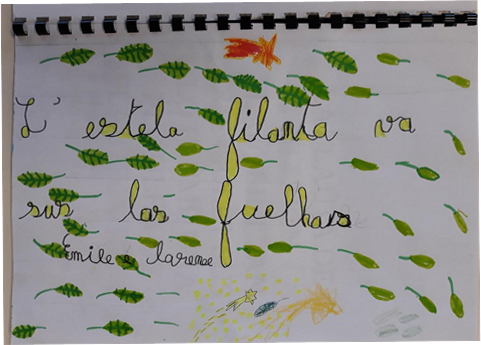 L' estela filanta va
sus las fuelhas
Emile e larence